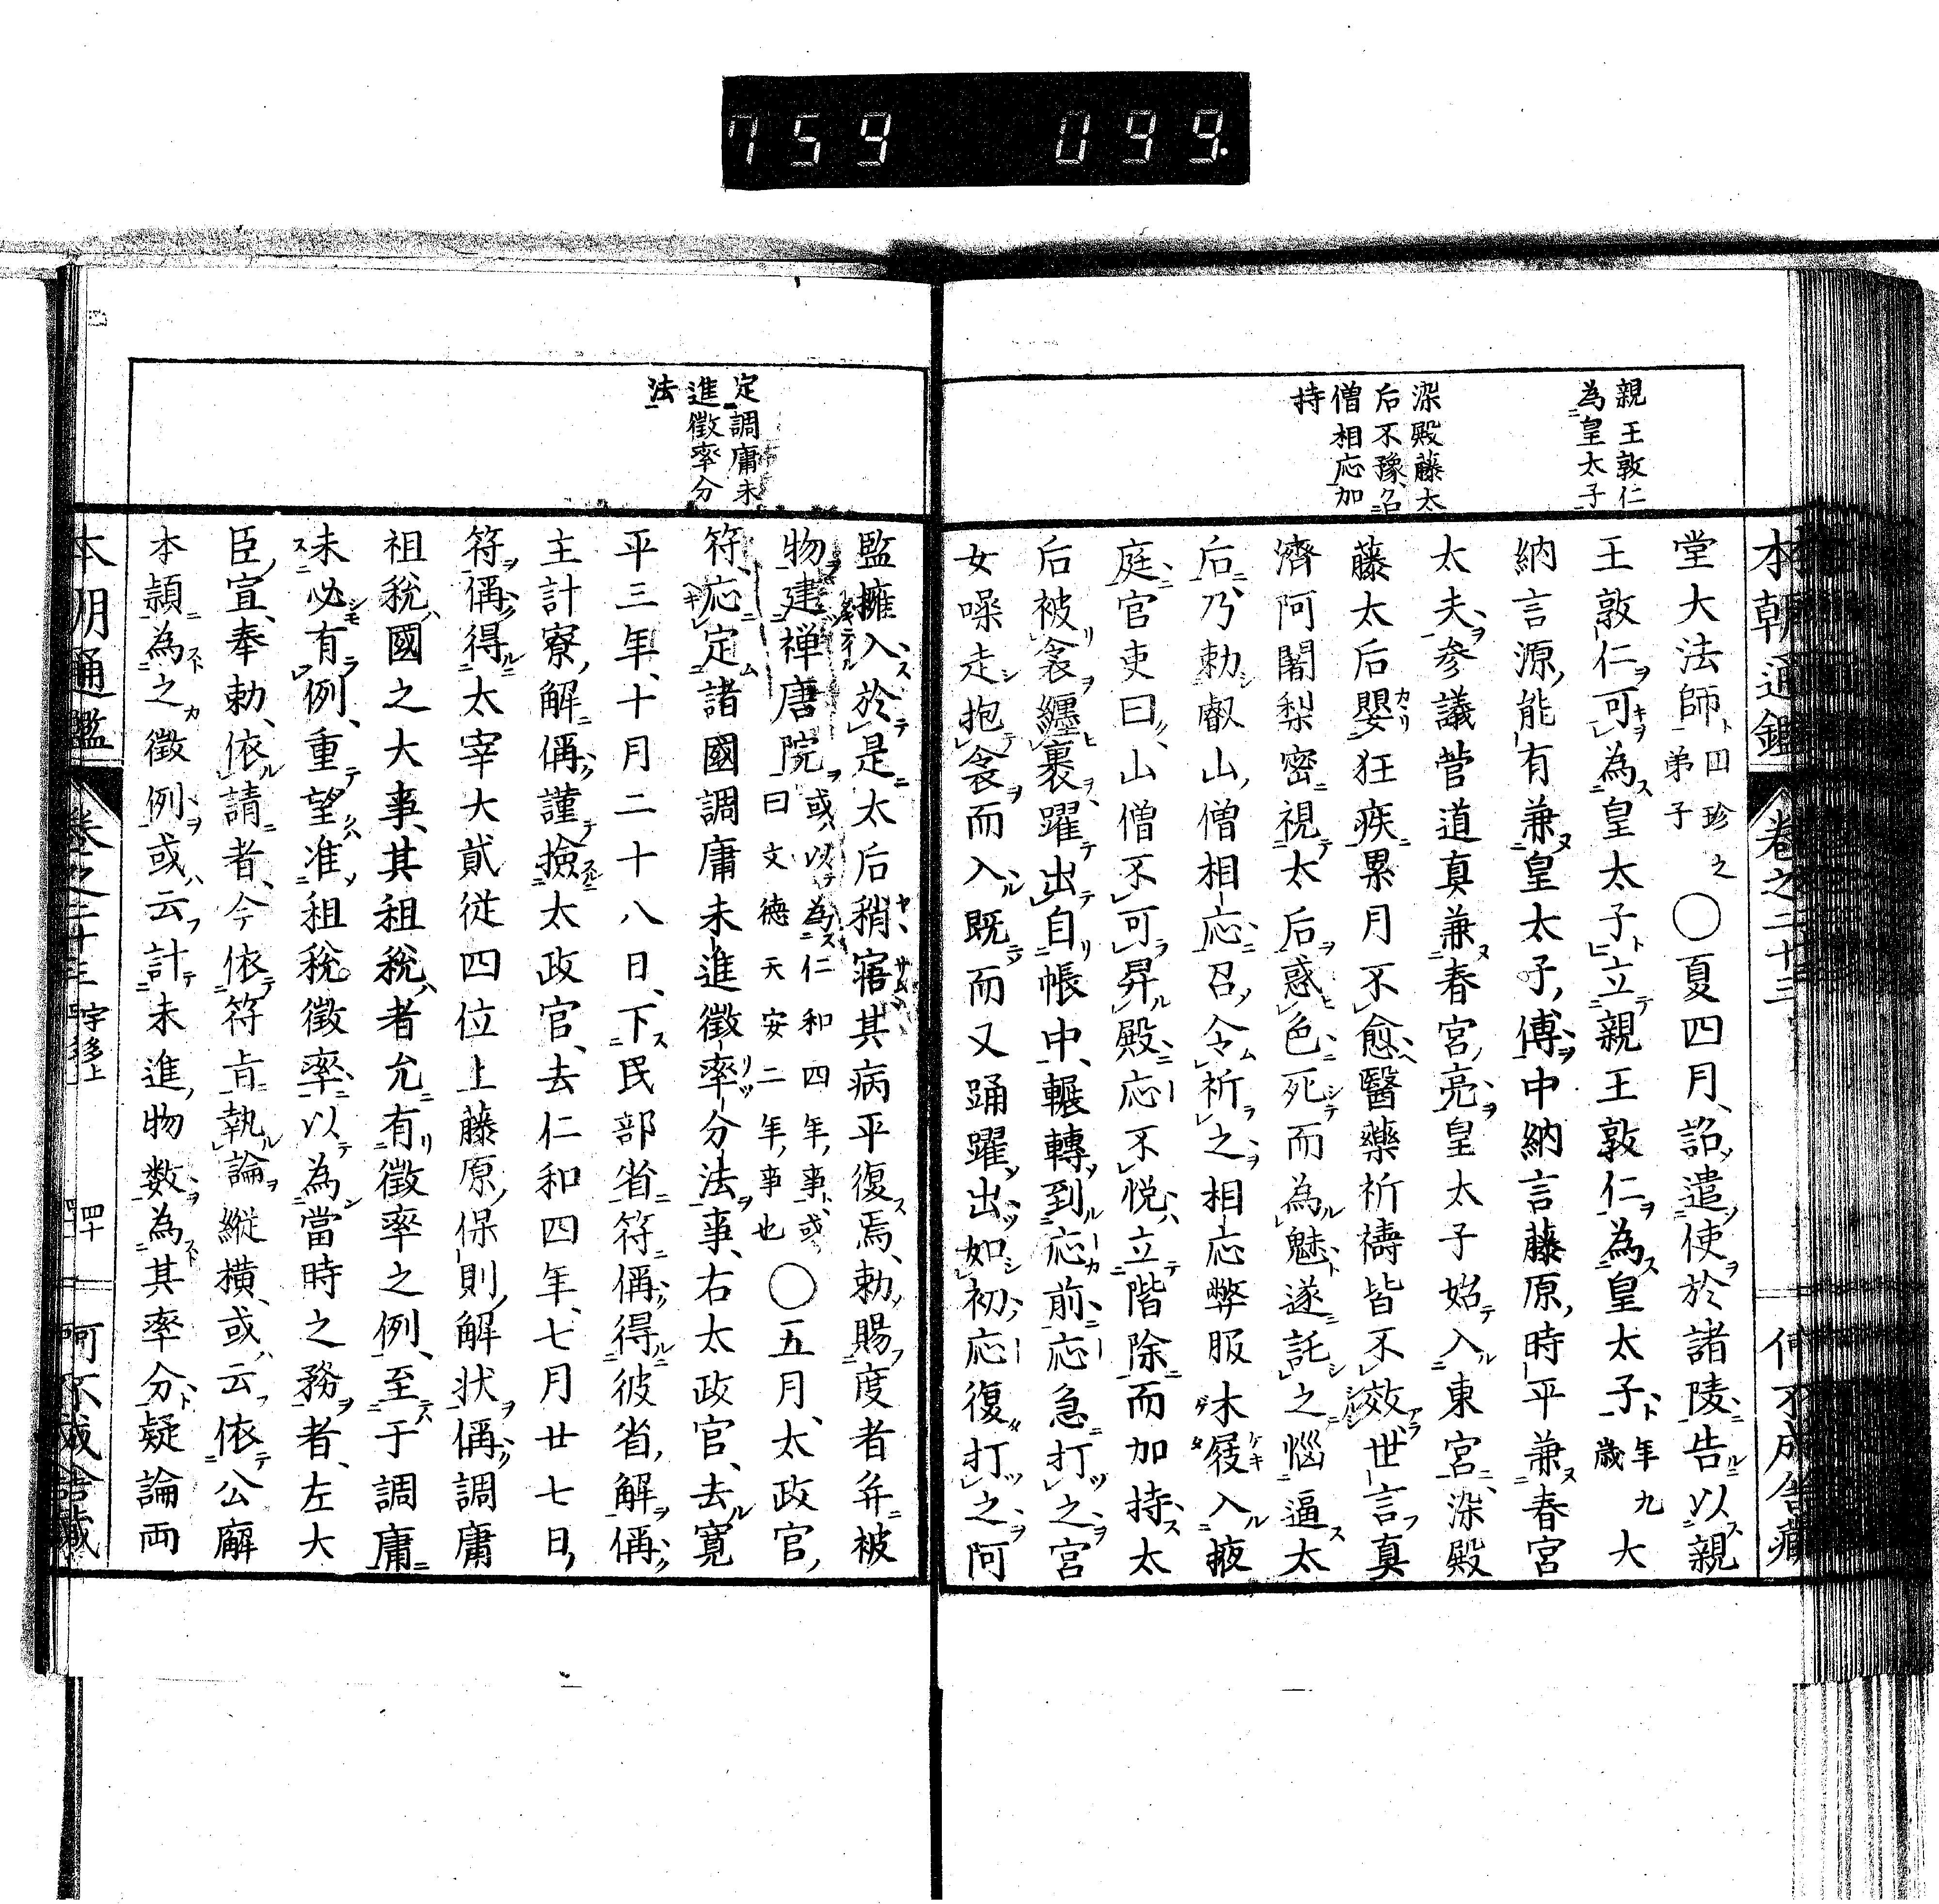 759 099.
本朝通鑑 卷之二十三
親王敦仁
為皇太子
染殿藤太
后不豫召
僧相応加
持
堂大法師円珍之弟子○夏四月、詔遣使於諸陵告以親
王敦仁可為皇太子立親王敦仁為皇太子年九歲大
納言源能有兼皇太子傅中納言藤原時平兼春宮
太夫参議菅道真兼春宮亮皇太子始入東宮染殿
藤太后嬰狂疾累月不愈醫藥祈禱皆不效世言真
濟阿闍梨密視太后惑色死而為魅遂託之惱逼太
后乃勅叡山僧相応召令祈之相応弊服木屐入掖
庭官吏曰山僧不可昇殿応不悦立階除而加持太
后被衾纏裹躍出自帳中輾轉到応前応急打之宮
女噪走抱衾而入既而又踊躍出如初応復打之阿
定調庸未
進徵率分
法
監擁入於是太后稍寤其病平復焉、勅賜度者并被
物建禅唐院或以為仁和四年事或曰文德天安二年事也○五月、太政官
符、応定諸國調庸未進徵率分法事、右太政官、去寛
平三年、十月二十八日、下民部省符偁得彼省解偁
主計寮解偁謹撿太政官、去仁和四年、七月廿七日
符偁得太宰大貳従四位上藤原保則解状偁調庸
租税國之大事、其租税者允有徵率之例、至于調庸
未必有例、重望准租税徵率以為當時之務者、左大
臣宣、奉勅、依請者、今依符旨執論縱横、或云依公廨
本穎為之徵例或云計未進物数為其率分疑論両
本朝通鑑 卷之二十三